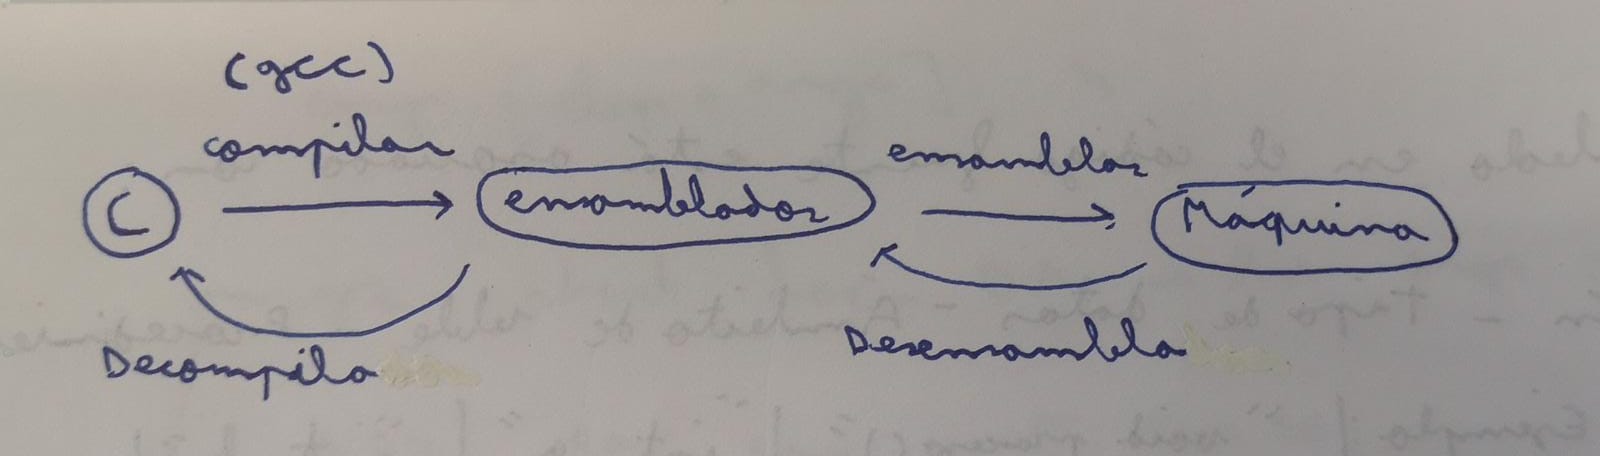 (gcc)
compilar
ensamblar
C
ensamblador
Máquina
Decompila
Desensambla